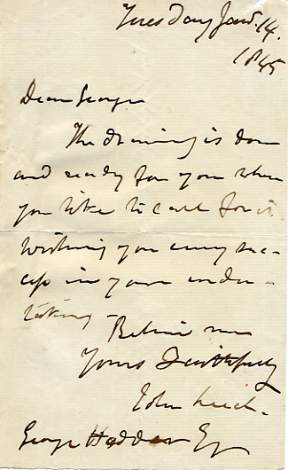 Tuesday Jany. 14.
1845
Dear George
The drawing is done
and ready for you when
you like to call for it.
Wishing you every suc-
cess in your under-
taking -
Believe me
Yours Faithfully
John Leech.
George Hodder Esq